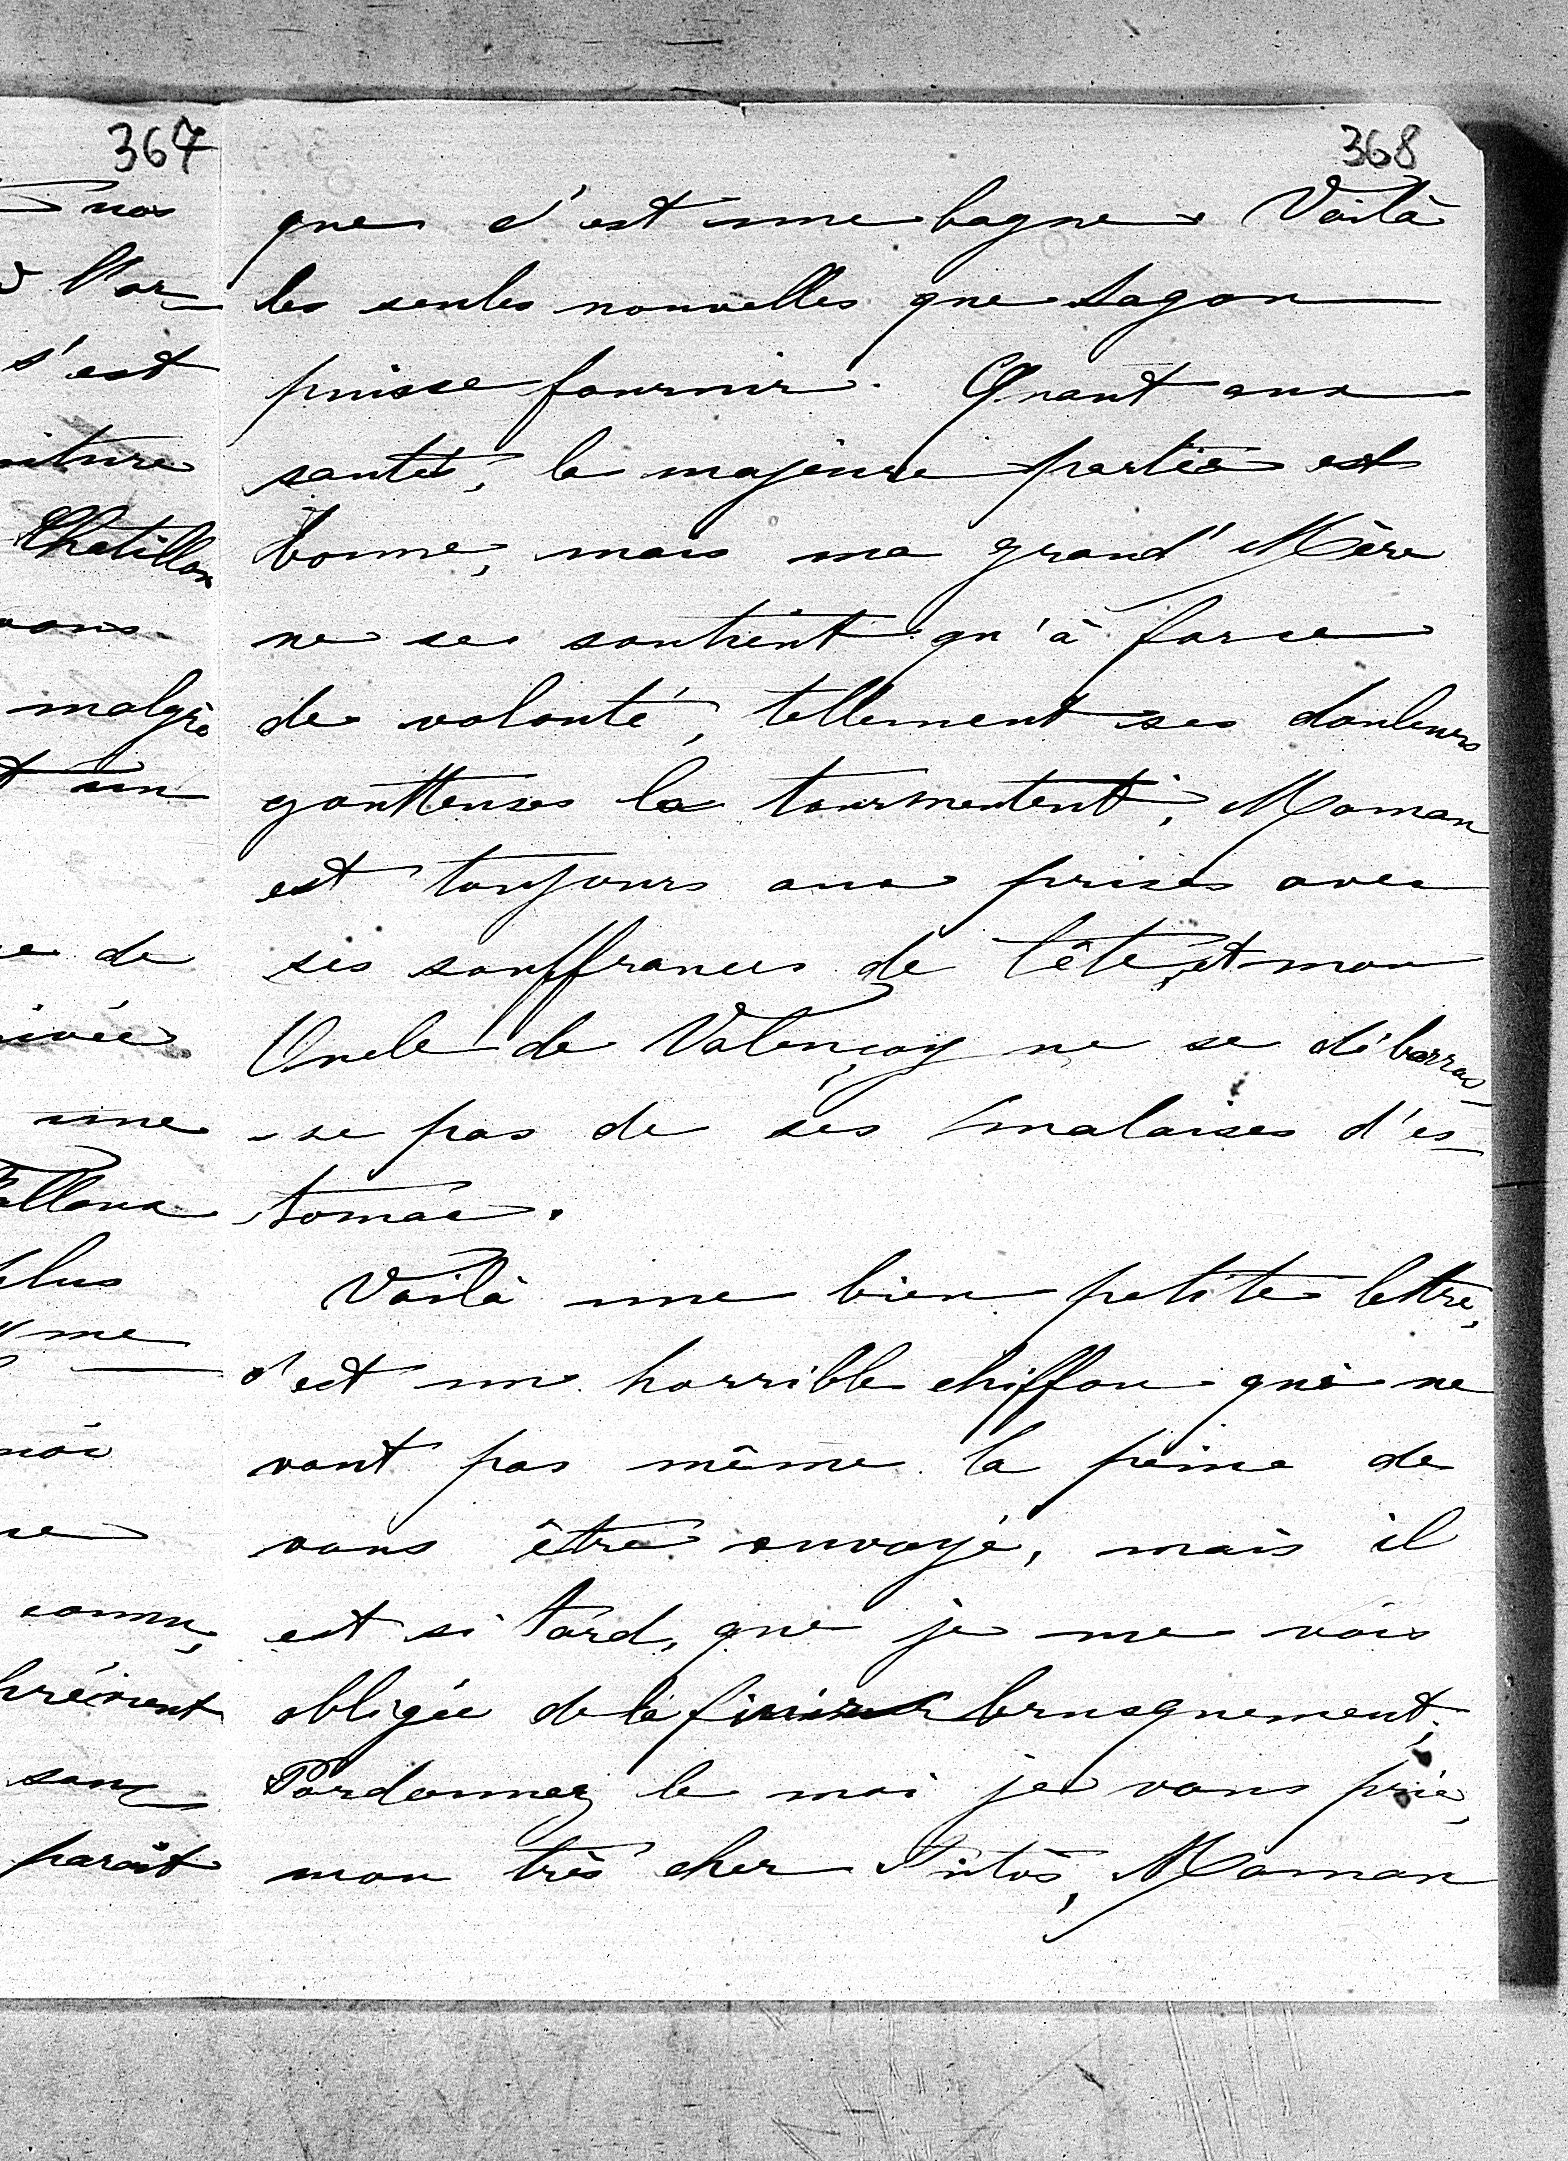 367
nos
l'or-
s'est
Chatillon
malgré
un
de
une
plus
me
moi
connu,
sans
paraît
368
que c'est une bague. Voilà
les seules nouvelles que Sagan
puisse fournir. Quant aux
santés, la majeure partie est
bonne, mais ma grand' Mère
ne se soutient qu'à force
de volonté, tellement ses douleurs
goutteuses la tourmentent; Maman
est toujours aux prises avec
ses souffrances de tête, et mon
Oncle de Valençay ne se débarras-
-se pas de ses malaises d'es-
tomac.
Voilà une bien petite lettre,
c'est un horrible chiffon qui ne
vaut pas même la peine de
vous être envoyé, mais il
est si tard, que je me vois
obligée de la finir brusquement;
Pardonnez le moi je vous prie,
mon très cher Maman